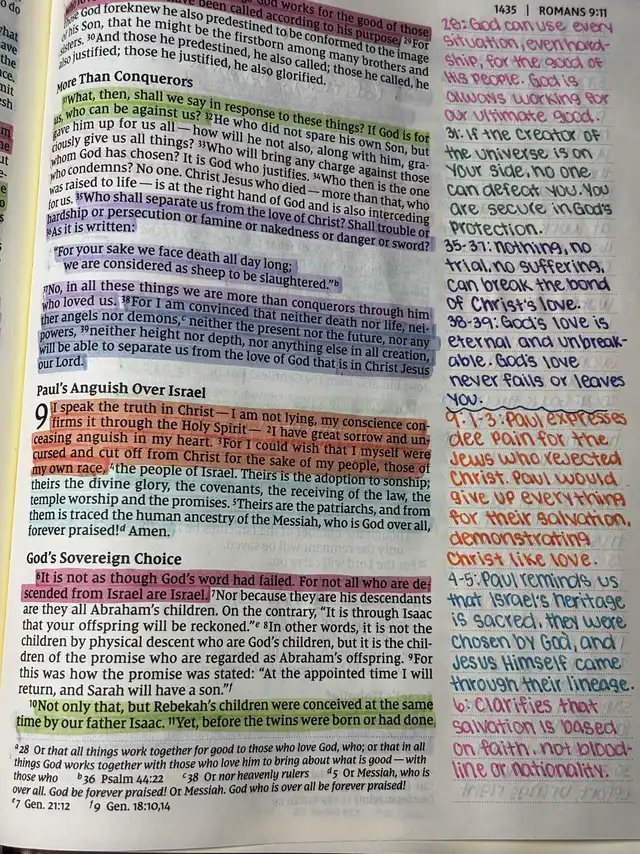 1435 | ROMANS 9:11
God works for the good of those
have been called according to his purpose. 29 For
those God foreknew he also predestined to be conformed to the image
of his Son, that he might be the firstborn among many brothers and
sisters. 30 And those he predestined, he also called; those he called, he
also justified; those he justified, he also glorified.
More Than Conquerors
31 What, then, shall we say in response to these things? If God is for
us, who can be against us? 32 He who did not spare his own Son, but
gave him up for us all — how will he not also, along with him, gra-
ciously give us all things? 33 Who will bring any charge against those
whom God has chosen? It is God who justifies. 34 Who then is the one
who condemns? No one. Christ Jesus who died — more than that, who
was raised to life — is at the right hand of God and is also interceding
for us. 35 Who shall separate us from the love of Christ? Shall trouble or
hardship or persecution or famine or nakedness or danger or sword?
36 As it is written:
"For your sake we face death all day long;
we are considered as sheep to be slaughtered." b
37 No, in all these things we are more than conquerors through him
who loved us. 38 For I am convinced that neither death nor life, nei-
ther angels nor demons, c neither the present nor the future, nor any
powers, 39 neither height nor depth, nor anything else in all creation,
will be able to separate us from the love of God that is in Christ Jesus
our Lord.
Paul's Anguish Over Israel
9 I speak the truth in Christ — I am not lying, my conscience con-
firms it through the Holy Spirit — 2 I have great sorrow and un-
ceasing anguish in my heart. 3 For I could wish that I myself were
cursed and cut off from Christ for the sake of my people, those of
my own race, 4 the people of Israel. Theirs is the adoption to sonship;
theirs the divine glory, the covenants, the receiving of the law, the
temple worship and the promises. 5 Theirs are the patriarchs, and from
them is traced the human ancestry of the Messiah, who is God over all,
forever praised! d Amen.
God's Sovereign Choice
6 It is not as though God's word had failed. For not all who are de-
scended from Israel are Israel. 7 Nor because they are his descendants
are they all Abraham's children. On the contrary, "It is through Isaac
that your offspring will be reckoned." e 8 In other words, it is not the
children by physical descent who are God's children, but it is the chil-
dren of the promise who are regarded as Abraham's offspring. 9 For
this was how the promise was stated: "At the appointed time I will
return, and Sarah will have a son." f
10 Not only that, but Rebekah's children were conceived at the same
time by our father Isaac. 11 Yet, before the twins were born or had done
a 28 Or that all things work together for good to those who love God, who; or that in all
things God works together with those who love him to bring about what is good — with
those who b 36 Psalm 44:22 c 38 Or nor heavenly rulers d 5 Or Messiah, who is
over all. God be forever praised! Or Messiah. God who is over all be forever praised!
e 7 Gen. 21:12 f 9 Gen. 18:10,14
28: God can use every
situation, even hard-
ship, for the good of
His people. God is
always working for
our ultimate good.
31: if the creator of
the universe is on
your side, no one
can defeat you. You
are secure in God's
Protection.
35-37: nothing, no
trial, no suffering,
can break the bond
of Christ's love.
38-39: God's love is
eternal and unbreak-
able. God's love
never fails or leaves
you.
9: 1-3: Paul expresses
dee pain for the
Jews who rejected
Christ. Paul would
give up everything
for their salvation,
demonstrating
Christ like love.
4-5: Paul reminds us
that Israel's heritage
is sacred, they were
chosen by God, and
Jesus Himself came
through their lineage.
6: Clarifies that
salvation is based
on faith, not blood-
line or nationality.